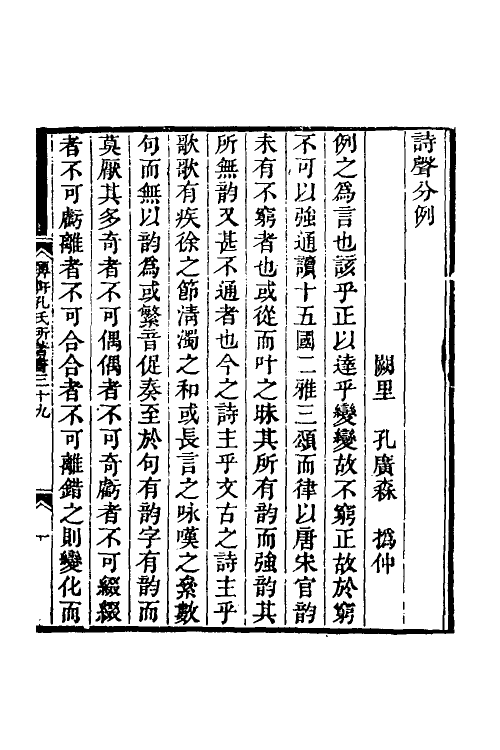 詩聲分例
闕里　孔廣森　撝仲
例之爲言也該乎正以達乎變變故不窮正故於窮
不可以強通讀十五國二雅三頌而律以唐宋官韵
未有不窮者也或從而叶之昧其所有韵而強韵其
所無韵又甚不通者也今之詩主乎文古之詩主乎
歌歌有疾徐之節淸濁之和或長言之咏嘆之絫數
句而無以韵爲或繁音促奏至於句有韵字有韵而
莫厭其多奇者不可偶偶者不可奇虧者不可綴綴
者不可虧離者不可合合者不可離錯之則變化而
顨軒孔氏所著書三十九